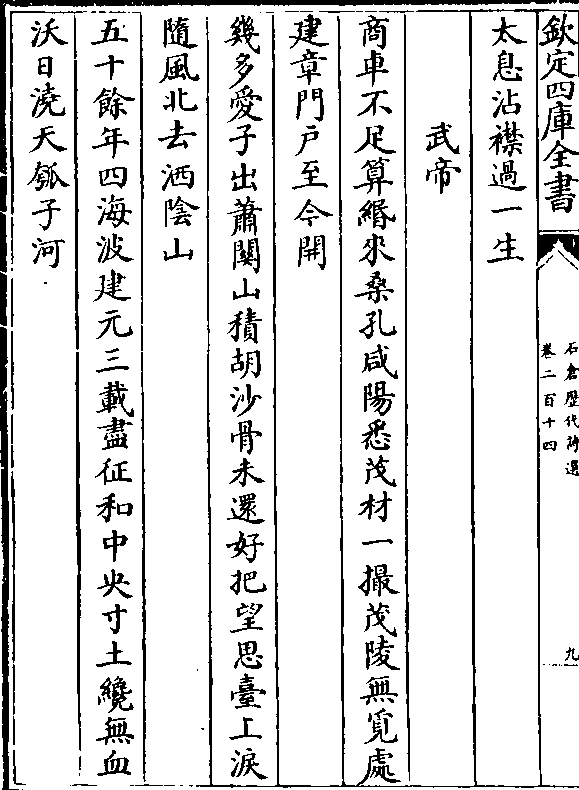 欽定四庫全書
石倉歷代詩選
卷二百十四
九
太息沾襟過一生
武帝
商車不足算緡來桑孔咸陽悉茂材一撮茂陵無覓處
建章門户至今開
幾多愛子出蕭關山積胡沙骨未還好把望思臺上淚
隨風北去洒陰山
五十餘年四海波建元三載盡征和中央寸土纔無血
沃日澆天瓠子河